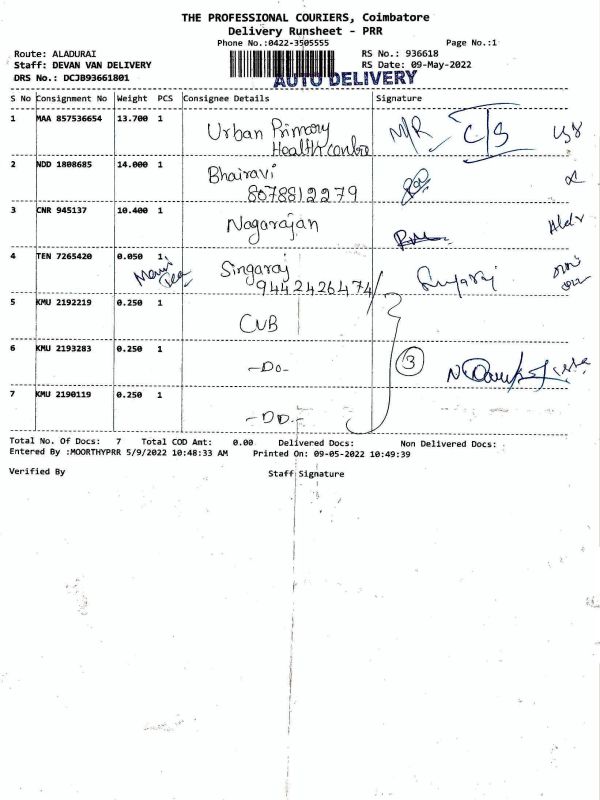 THE PROFESSIONAL COURIERS, Coimbatore
Delivery Runsheet - PRR
Phone No.:0422-3505555 Page No.:1
Route: ALADURAI RS No.: 936618
Staff: DEVAN VAN DELIVERY RS Date: 09-May-2022
DRS No.: DCJB93661801 AUTO DELIVERY
S No Consignment No Weight PCS Consignee Details Signature
1 MAA 857536654 13.700 1 Urban Primary M/R C/S
Health
2 NDD 1808685 14.000 1 Bhairavi
8078812279
3 CNR 945137 10.400 1 Nagarajan
4 TEN 7265420 0.050 1 Singaraj
9442426474
5 KMU 2192219 0.250 1 CUB
6 KMU 2193283 0.250 1 -Do- 3
7 KMU 2190119 0.250 1 -DO-
Total No. Of Docs: 7 Total COD Amt: 0.00 Delivered Docs: Non Delivered Docs:
Entered By :MOORTHYPRR 5/9/2022 10:48:33 AM Printed On: 09-05-2022 10:49:39
Verified By Staff Signature